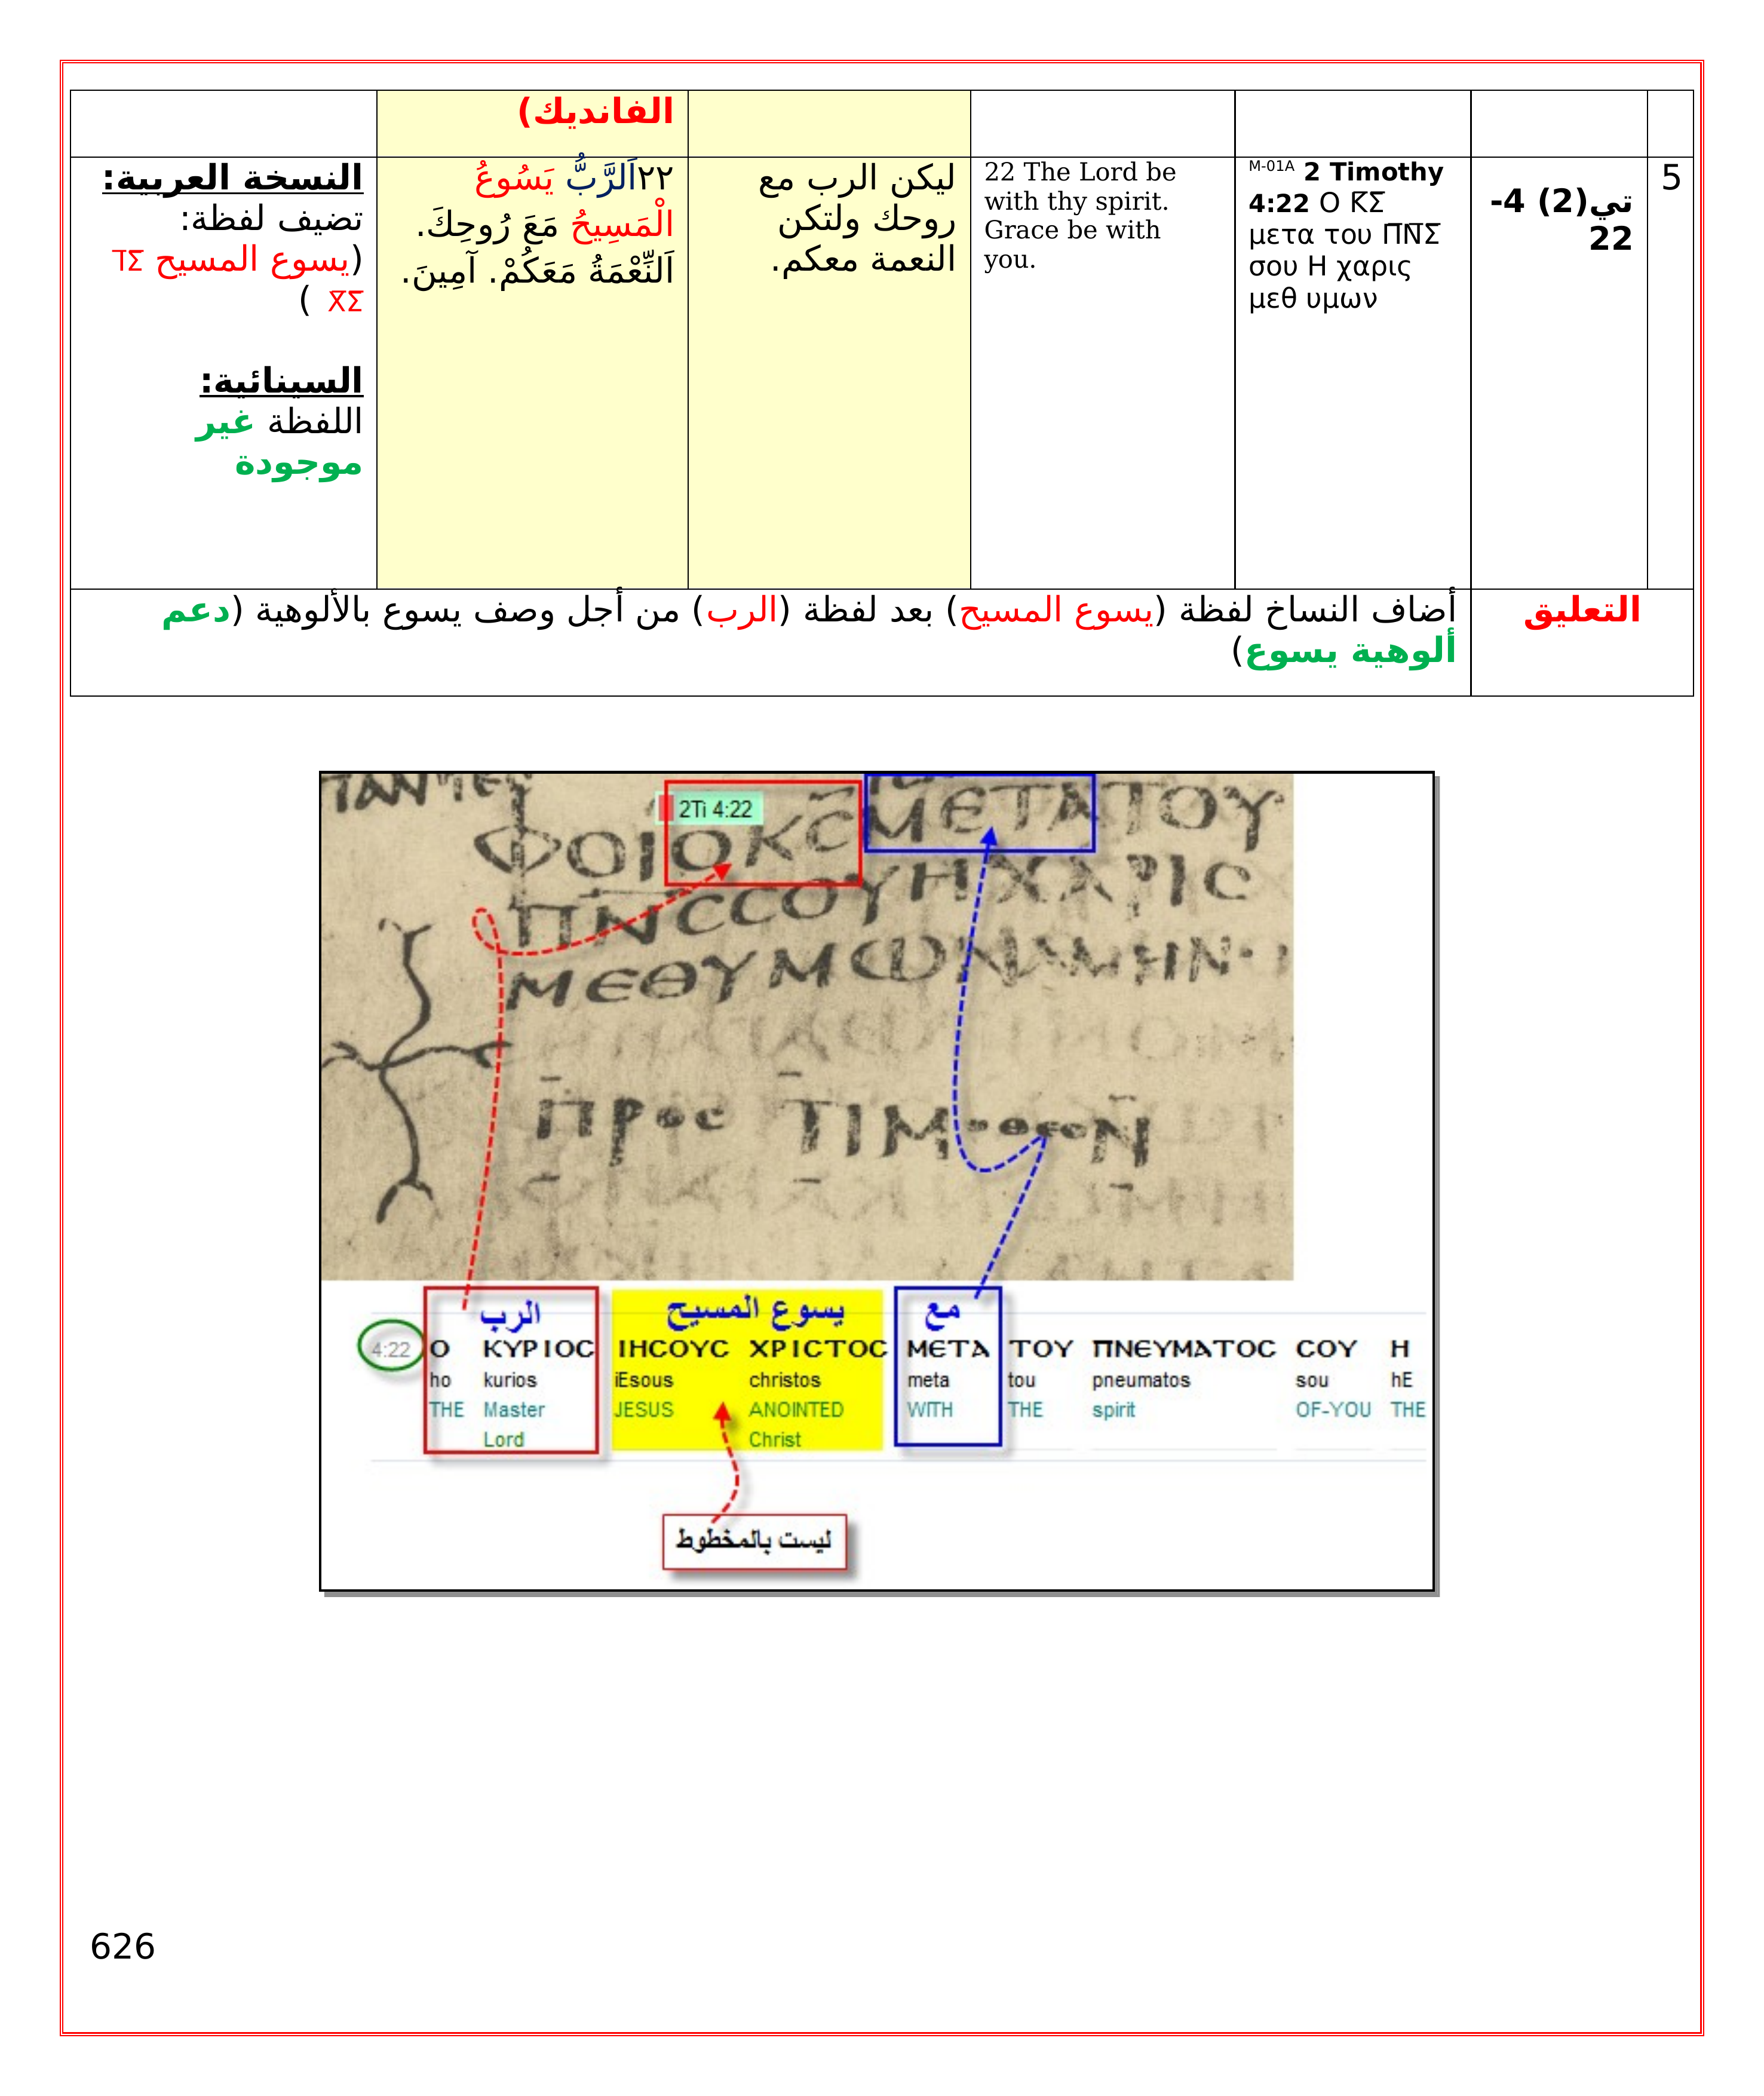 الفانديك)
5
تي(2) 4-
22
M-01A 2 Timothy
4:22 Ο Κ̅Σ̅
μετα του Π̅Ν̅Σ̅
σου Η χαρις
μεθ υμων
22 The Lord be
with thy spirit.
Grace be with
you.
ليكن الرب مع
روحك ولتكن
النعمة معكم.
٢٢اَلرَّبُّ يَسُوعُ
الْمَسِيحُ مَعَ رُوحِكَ.
اَلنِّعْمَةُ مَعَكُمْ. آمِينَ.
النسخة العربية:
تضيف لفظة:
(يسوع المسيح Ι̅Σ̅
Χ̅Σ̅ )
السينائية:
اللفظة غير
موجودة
التعليق
أضاف النساخ لفظة (يسوع المسيح) بعد لفظة (الرب) من أجل وصف يسوع بالألوهية (دعم
ألوهية يسوع)
2Ti 4:22
ΦΟΙΟΚ̅C̅ΜΕΤΑΤΟΥ
Π̅Ν̅C̅CΟΥΗΧΑΡΙC
ΜΕΘΥΜΩΝΑΜΗΝ
ΠΡΟC ΤΙΜΟΘΕΟΝ
الرب يسوع المسيح مع
4:22 Ο ΚΥΡΙΟC ΙΗCΟΥC ΧΡΙCΤΟC ΜΕΤΑ ΤΟΥ ΠΝΕΥΜΑΤΟC CΟΥ Η
ho kurios iEsous christos meta tou pneumatos sou hE
THE Master JESUS ANOINTED WITH THE spirit OF-YOU THE
Lord Christ
ليست بالمخطوط
626